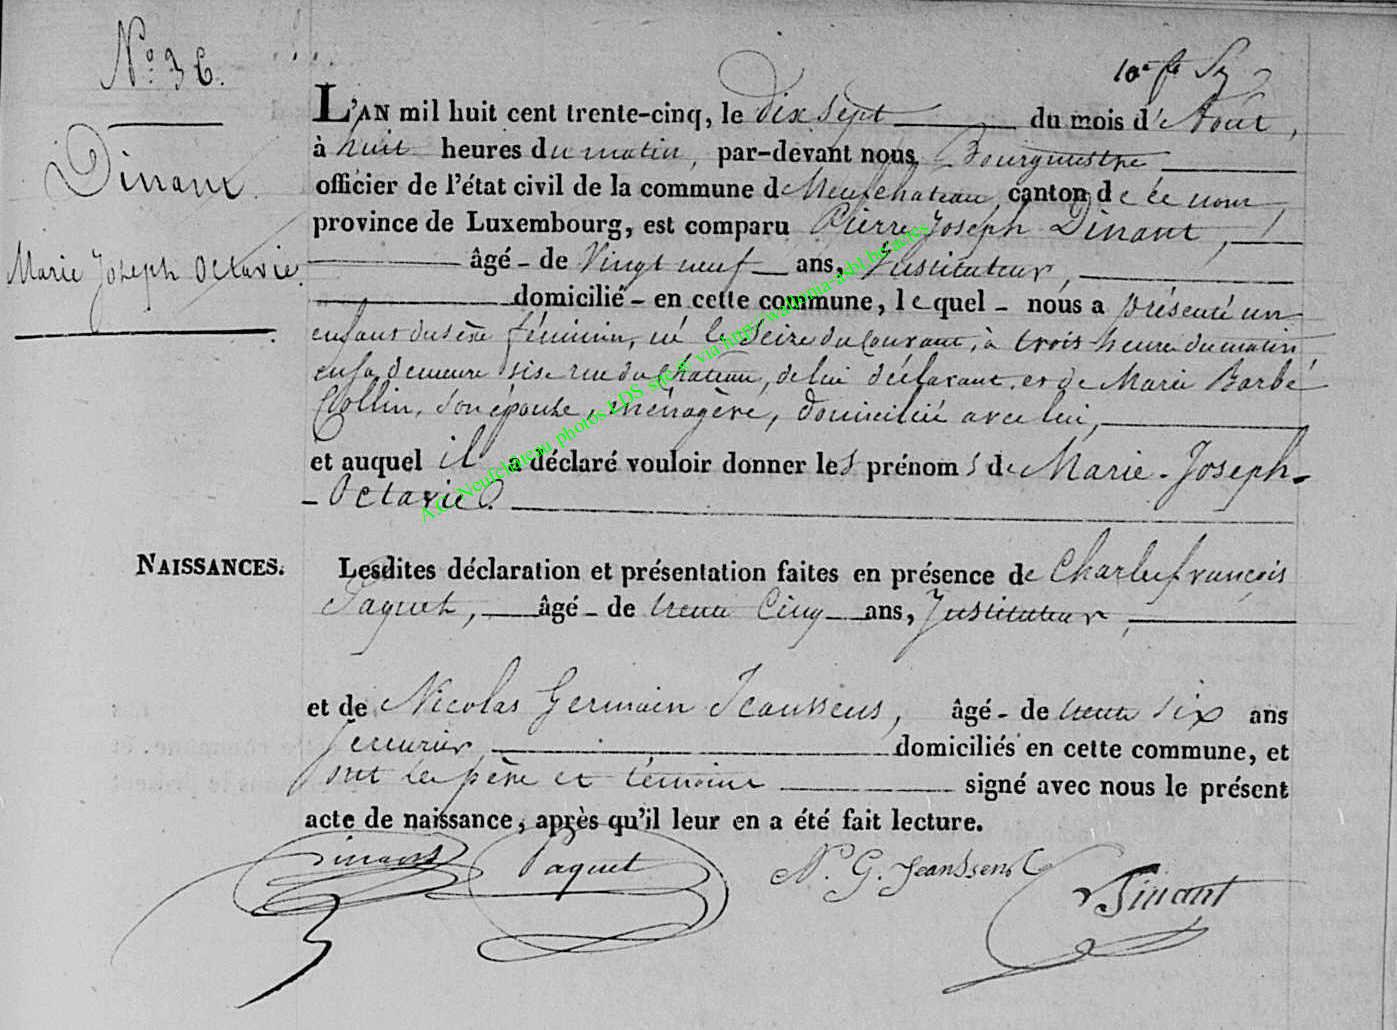 N° 36.
Dinant
Marie Joseph Octavie.
L'AN mil huit cent trente-cinq, le dix sept du mois d'Août,
à huit heures du matin, par-devant nous Bourgmestre
officier de l'état civil de la commune de Neufchateau, canton de ce nom,
province de Luxembourg, est comparu Pierre Joseph Dinant,
âgé - de Vingt neuf ans, Instituteur,
domicilié - en cette commune, lequel - nous a présenté un
enfant du sexe féminin, né le Seize du Courant, à trois heures du matin,
en sa demeure sise rue du Chateau, de lui déclarant, et de Marie Barbe
Collin, son épouse, ménagère, domiciliée avec lui,
et auquel il a déclaré vouloir donner les prénoms de Marie-Joseph-
-Octavie.
NAISSANCES.
Lesdites déclaration et présentation faites en présence de Charles françois
Paquet, âgé - de trente Cinq ans, Instituteur,
et de Nicolas Germain Jeanssens, âgé - de trente six ans
Serrurier domiciliés en cette commune, et
ont les père et témoins signé avec nous le présent
acte de naissance, après qu'il leur en a été fait lecture.
Dinant Paquet N. G. Jeanssens Dinant
A.C. Neufchâteau photos LDS site @ via http://wallonia-asbl.be/actes